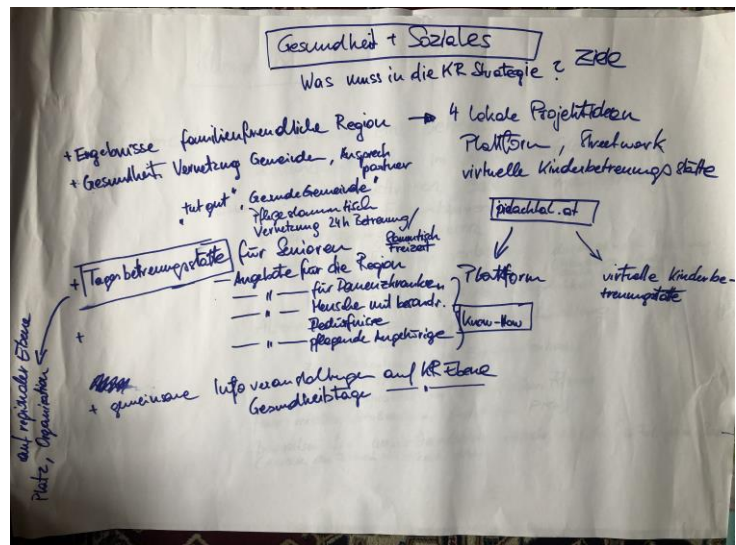 Gesundheit + Soziales
Was muss in die KR Strategie ? Ziele
+ Ergebnisse familienfreundliche Region → 4 lokale Projektideen
Plattform, Streetwork
virtuelle Kinderbetreuungsstätte
+ Gesundheit: Vernetzung Gemeinden, Ansprechpartner
"tut gut", "Gesunde Gemeinde"
Pflegestammtisch
Vernetzung 24h Betreuung/
Freizeit
pielachtal.at
+ Tagesbetreuungsstätte für Senioren
— Angebote für die Region
— " — für Demenzkranken
— " — Mensche mit besondr.
Bedürfnisse
— " — pflegende Angehörige
Plattform
Know-How
virtuelle Kinderbe-
treuungstätte
+
+ gemeinsame Infoveranstaltungen auf KR Ebene
Gesundheitstage — " —
auf regionaler Ebene
Platz, Organisation